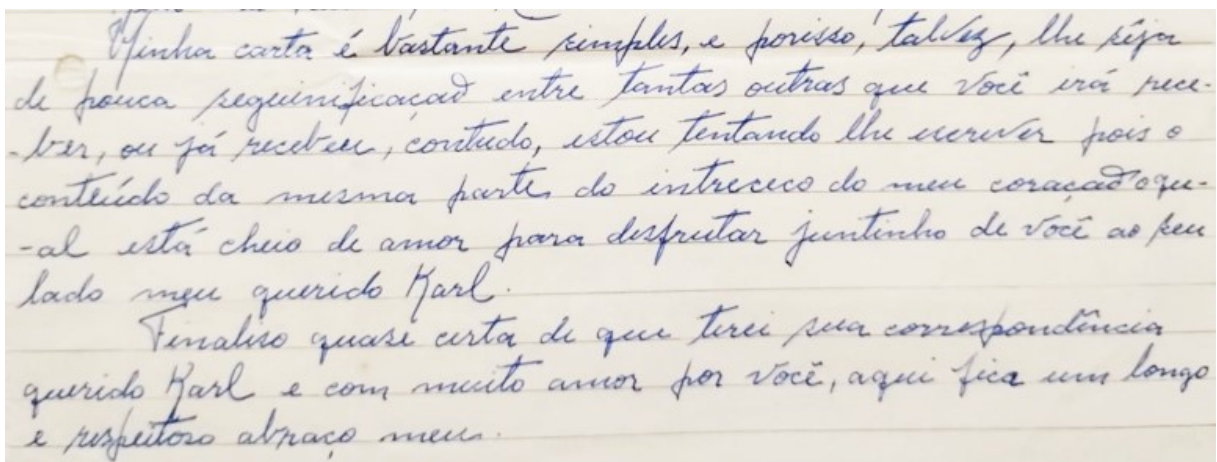 Minha carta é bastante simples, e porisso, talvez, lhe seja
de pouca seguinificaçaõ entre tantas outras que você irá rece-
-ber, ou já recebeu, contudo, estou tentando lhe escrever pois o
conteúdo da mesma parte do intrececo do meu coraçaõ o qu-
-al está cheio de amor para desfrutar juntinho de você ao seu
lado meu querido Karl.
Finaliso quase certa de que terei sua correspondência
querido Karl e com muito amor por você, aqui fica um longo
e respeitoso abraço meu.